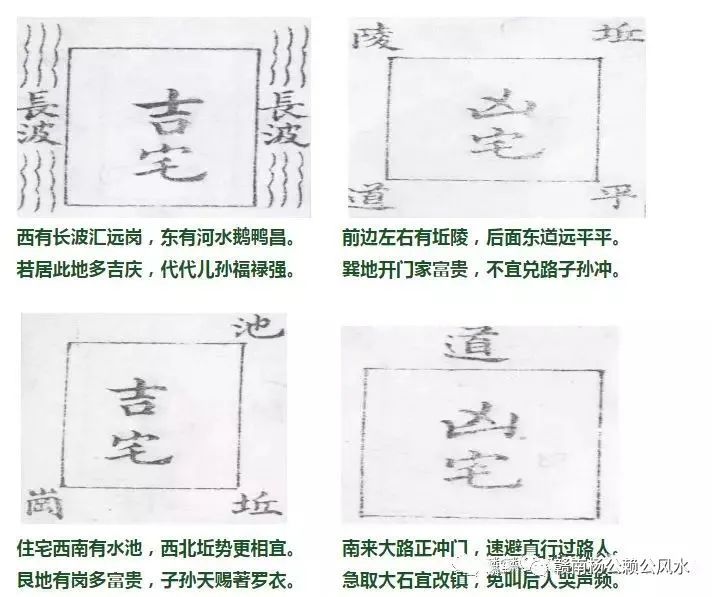 長波
吉宅
長波
西有长波汇远岗，东有河水鹅鸭昌。
若居此地多吉庆，代代儿孙福禄强。
陵 坵
凶宅
道 平
前边左右有坵陵，后面东道远平平。
巽地开门家富贵，不宜兑路子孙冲。
池
吉宅
崗 坵
住宅西南有水池，西北坵势更相宜。
艮地有岗多富贵，子孙天赐著罗衣。
道
凶宅
南来大路正冲门，速避直行过路人。
急取大石宜改镇，免叫后人哭声频。
赣南杨公赖公风水